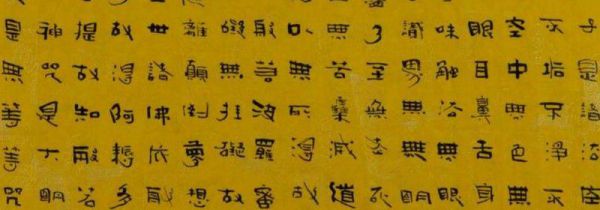 子是諸法空
不垢不淨不
空中無色無
眼耳鼻舌身
味觸法無眼
識界無無明
乃至無老死
無苦集滅道
以無所得故
般若波羅蜜
礙無罣礙故
離顛倒夢想
世諸佛依般
故得阿耨多
提故知般若
神咒是大明
是無等等咒